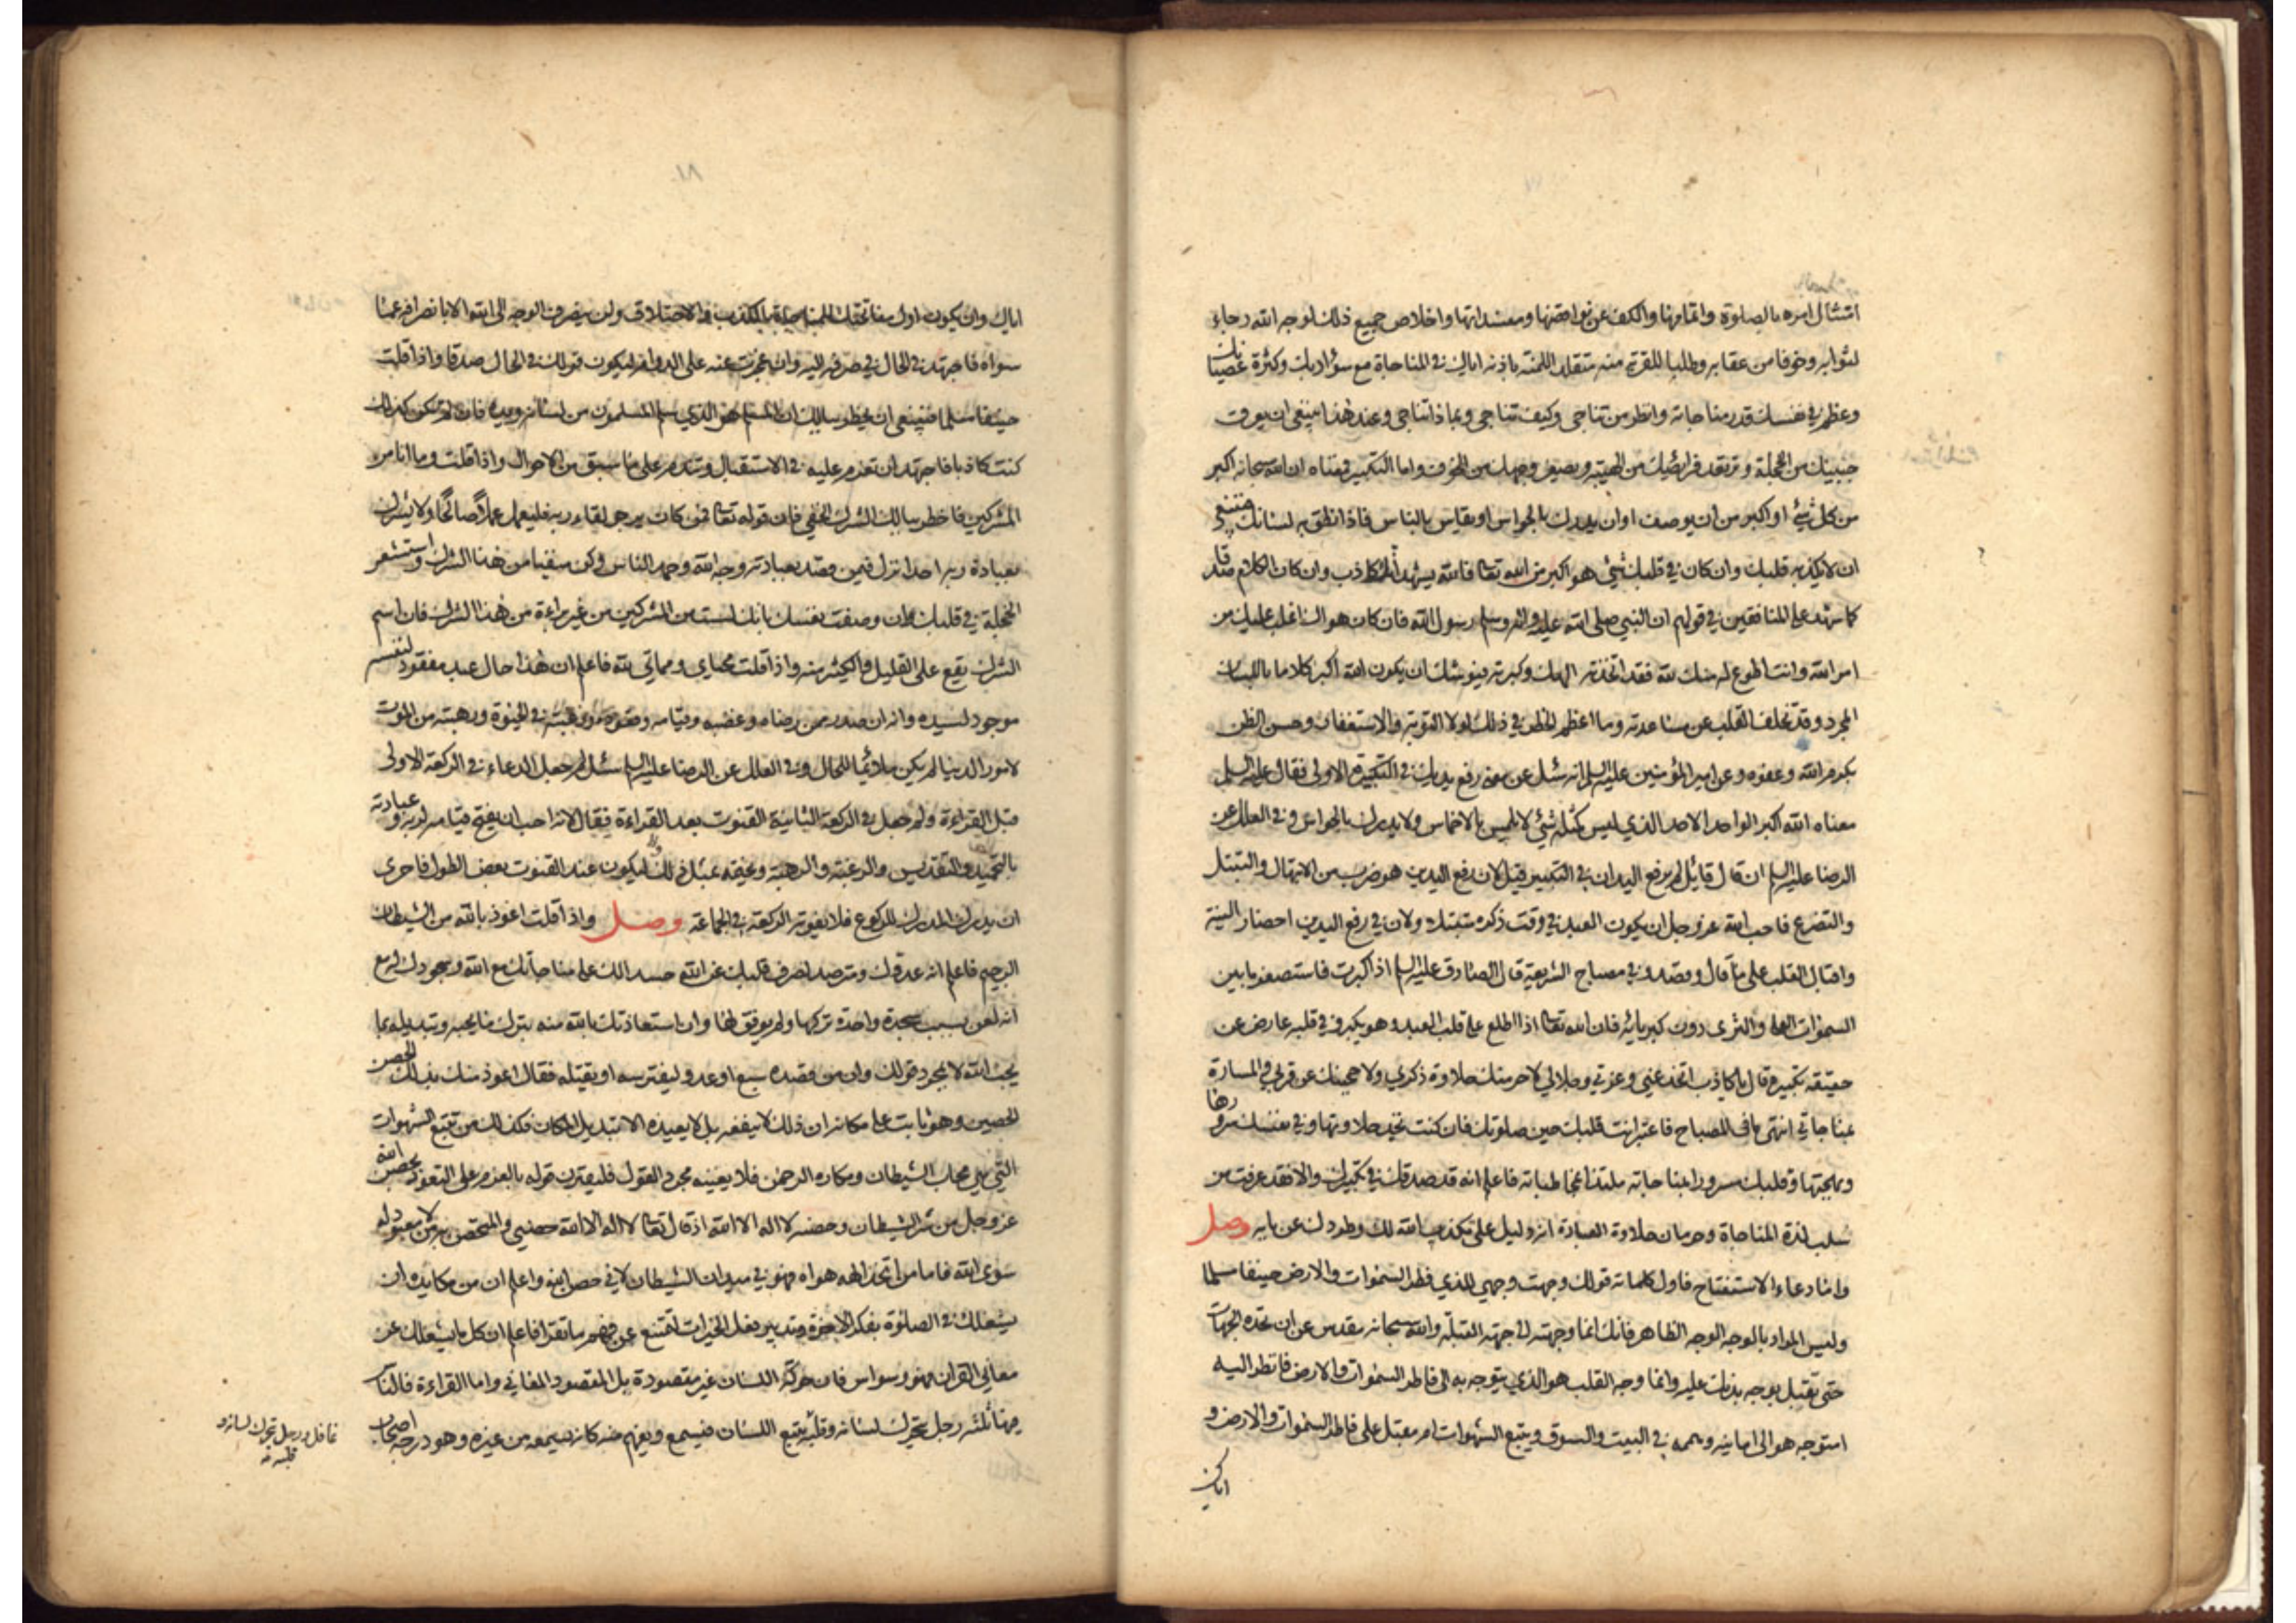 امتثال امره بالصلوة واتمامها والكف عن نواقضها ومفسداتها واخلاص جميع ذلك لوجه الله رجاء
لثوابه وخوفا من عقابه وطلبا للقربة منه متقلدا للمنة باذنه اياك في المناجاة مع سوء ادبك وكثرة عصيانك
وعظم في نفسك قدر مناجاته وانظر من تناجي وكيف تناجي وبماذا تناجي وعند هذا ينبغي ان يعرق
جبينك من الخجلة وترتعد فرائصك من الهيبة ويصفر وجهك من الخوف واما التكبير فمعناه ان الله سبحانه اكبر
من كل شئ او اكبر من ان يوصف او ان يدرك بالحواس او يقاس بالناس فاذا نطق به لسانك فينبغي
ان لا يكذبه قلبك وان كان في قلبك شئ هو اكبر من الله تعالى فالله يشهد انك لكاذب وان كان الكلام صدقا
كما شهد على المنافقين في قولهم ان النبي صلى الله عليه واله وسلم رسول الله فان كان هواك اغلب عليك من
امر الله وانت اطوع له منك لله فقد اتخذته الهك وكبرته فيوشك ان يكون قولك الله اكبر كلاما باللسان
المجرد وقد تخلف القلب عن مساعدته وما اعظم الخطر في ذلك لولا التوبة والاستغفار وحسن الظن
بكرم الله وعفوه وعن امير المؤمنين عليه السلم انه سئل عن معنى رفع يديك في التكبيرة الاولى فقال عليه السلم
معناه الله اكبر الواحد الاحد الذي ليس كمثله شئ لا يلمس بالاخماس ولا يدرك بالحواس وفي العلل عن
الرضا عليه السلم ان قال قائل لم يرفع اليدان في التكبير قيل لان رفع اليدين هو ضرب من الابتهال والتبتل
والتضرع فاحب الله عز وجل ان يكون العبد في وقت ذكره متبتلا ولان في رفع اليدين احضار النية
واقبال القلب على ما قال وقصد وفي مصباح الشريعة قال الصادق عليه السلم اذا كبرت فاستصغر ما بين
السموات العلى والثرى دون كبريائه فان الله تعالى اذا اطلع على قلب العبد وهو يكبر وفي قلبه عارض عن
حقيقة تكبيره قال يا كاذب اتخدعني وعزتي وجلالي لاحرمنك حلاوة ذكري ولاحجبنك عن قربي والمسارة
بمناجاتي انتهى ما في المصباح فاعتبر انت قلبك حين صلوتك فان كنت تجد حلاوتها وفي نفسك سرورها
وبهجتها وقلبك مسرورا بمناجاته ملتذا بمخاطباته فاعلم انه قد صدقك في تكبيرك والا فقد عرفت من
سلب لذة المناجاة وحرمان حلاوة العبادة انه دليل على تكذيب الله لك وطردك عن بابه وصل
واما دعاء الاستفتاح فاول كلماته قولك وجهت وجهي للذي فطر السموات والارض حنيفا مسلما
وليس المراد بالوجه الوجه الظاهر فانك انما وجهته الى جهة القبلة والله سبحانه يتقدس عن ان تحده الجهات
حتى تقبل بوجه بدنك عليه وانما وجه القلب هو الذي يتوجه به الى فاطر السموات والارض فانظر اليه
امتوجه هو الى امانيه وهمه في البيت والسوق ويتبع الشهوات ام مقبل على فاطر السموات والارض و
اياك ان
اياك وان يكون اول مفاتحتك للمناجاة بالكذب والاختلاق ولن ينصرف الوجه الى الله الا بانصرافه عما
سواه فاجتهد في الحال في صرفه اليه وان عجزت عنه على الدوام ليكون قولك في الحال صدقا واذا قلت
حنيفا مسلما فينبغي ان يخطر ببالك ان المسلم هو الذي سلم المسلمون من لسانه ويده فان لم تكن كذلك
كنت كاذبا فاجتهد ان تعزم عليه في الاستقبال وتندم على ما سبق من الاحوال واذا قلت وما انا من
المشركين فاخطر ببالك الشرك الخفي فان قوله تعالى فمن كان يرجو لقاء ربه فليعمل عملا صالحا ولا يشرك
بعبادة ربه احدا نزل فيمن قصد بعبادته وجه الله وحمد الناس وكن متقيا من هذا الشرك واستشعر
الخجلة في قلبك ان وصفت نفسك بانك لست من المشركين من غير براءة من هذا الشرك فان اسم
الشرك يقع على القليل والكثير منه واذا قلت محياي ومماتي لله فاعلم ان هذا حال عبد مفقود لنفسه
موجود لسيده وانه ان صدر ممن رضاه وغضبه وقيامه وقعوده ورغبته في الحيوة ورهبته من الموت
لامور الدنيا لم يكن ملائما للحال وفي العلل عن الرضا عليه السلم سئل لم جعل الدعاء في الركعة الاولى
قبل القراءة ولم جعل في الركعة الثانية القنوت بعد القراءة فقال لانه احب ان يفتح قيامه لربه وعبادته
بالتحميد والتقديس والرغبة والرهبة ويختمه بمثل ذلك وليكون عند القنوت بعض الطول فاحرى
ان يدرك المدرك للركوع فلا يفوته الركعة في الجماعة وصل واذا قلت اعوذ بالله من الشيطان
الرجيم فاعلم انه عدوك ومترصد لصرف قلبك عن الله حسدا لك على مناجاتك مع الله وسجودك له مع
انه لعن بسبب سجدة واحدة تركها ولم يوفق لها وان استعاذتك بالله منه بترك ما يحبه وتبديله بما
يحب الله لا بمجرد قولك وان من قصده سبع او عدو ليفترسه او يقتله فقال اعوذ منك بذلك الحصن
الحصين وهو ثابت على مكانه ان ذلك لا ينفعه بل لا يعيذه الا تبديل المكان فكذلك من تتبع الشهوات
التي هي محاب الشيطان ومكاره الرحمن فلا يعينه مجرد القول فليقترن قوله بالعزم على التعوذ بحصن الله
عز وجل من شر الشيطان وحصنه لا اله الا الله اذ قال تعالى لا اله الا الله حصني والمتحصن به من لا معبود له
سوى الله فاما من اتخذ الهه هواه فهو في ميدان الشيطان لا في حصن الله واعلم ان من مكايده ان
يشغلك في الصلوة بفكر الاخرة وتدبير فعل الخيرات لتمتنع عن فهم ما تقرا فاعلم ان كل ما يشغلك عن
معاني القران فهو وسواس فان حركة اللسان غير مقصودة بل المقصود المعاني واما القراءة فالناس
فيها ثلثة رجل يتحرك لسانه وقلبه يتبع اللسان فيسمع ويفهم منه كانه يسمعه من غيره وهو درجة اصحاب
غافل ورجل تحرك لسانه و
قلبه